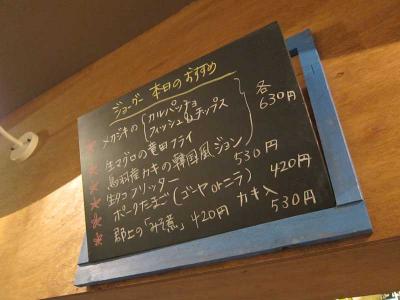 ジョーグー 本日のおすすめ
メカジキの カルパッチョ
フィッシュ&チップス 各630円
生マグロの竜田フライ
鳥羽産カキの韓国風ジョン 530円
生タコフリッター 420円
ポークたまご(ゴーヤorニラ) 530円
郡上の「みそ煮」 420円 カキ入